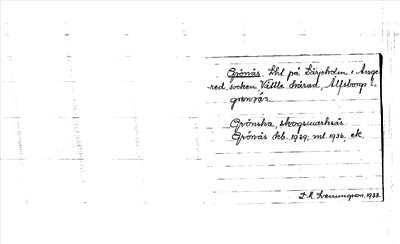 Grönås. Lht på Lärjeholm i Ange-
red socken Vättle härad, Älfsborgs l.
grønnås
Grönska, skogsmarksås.
Grönås kb. 1929; ml. 1936, ek.
D. A. Svenungson. 1938.